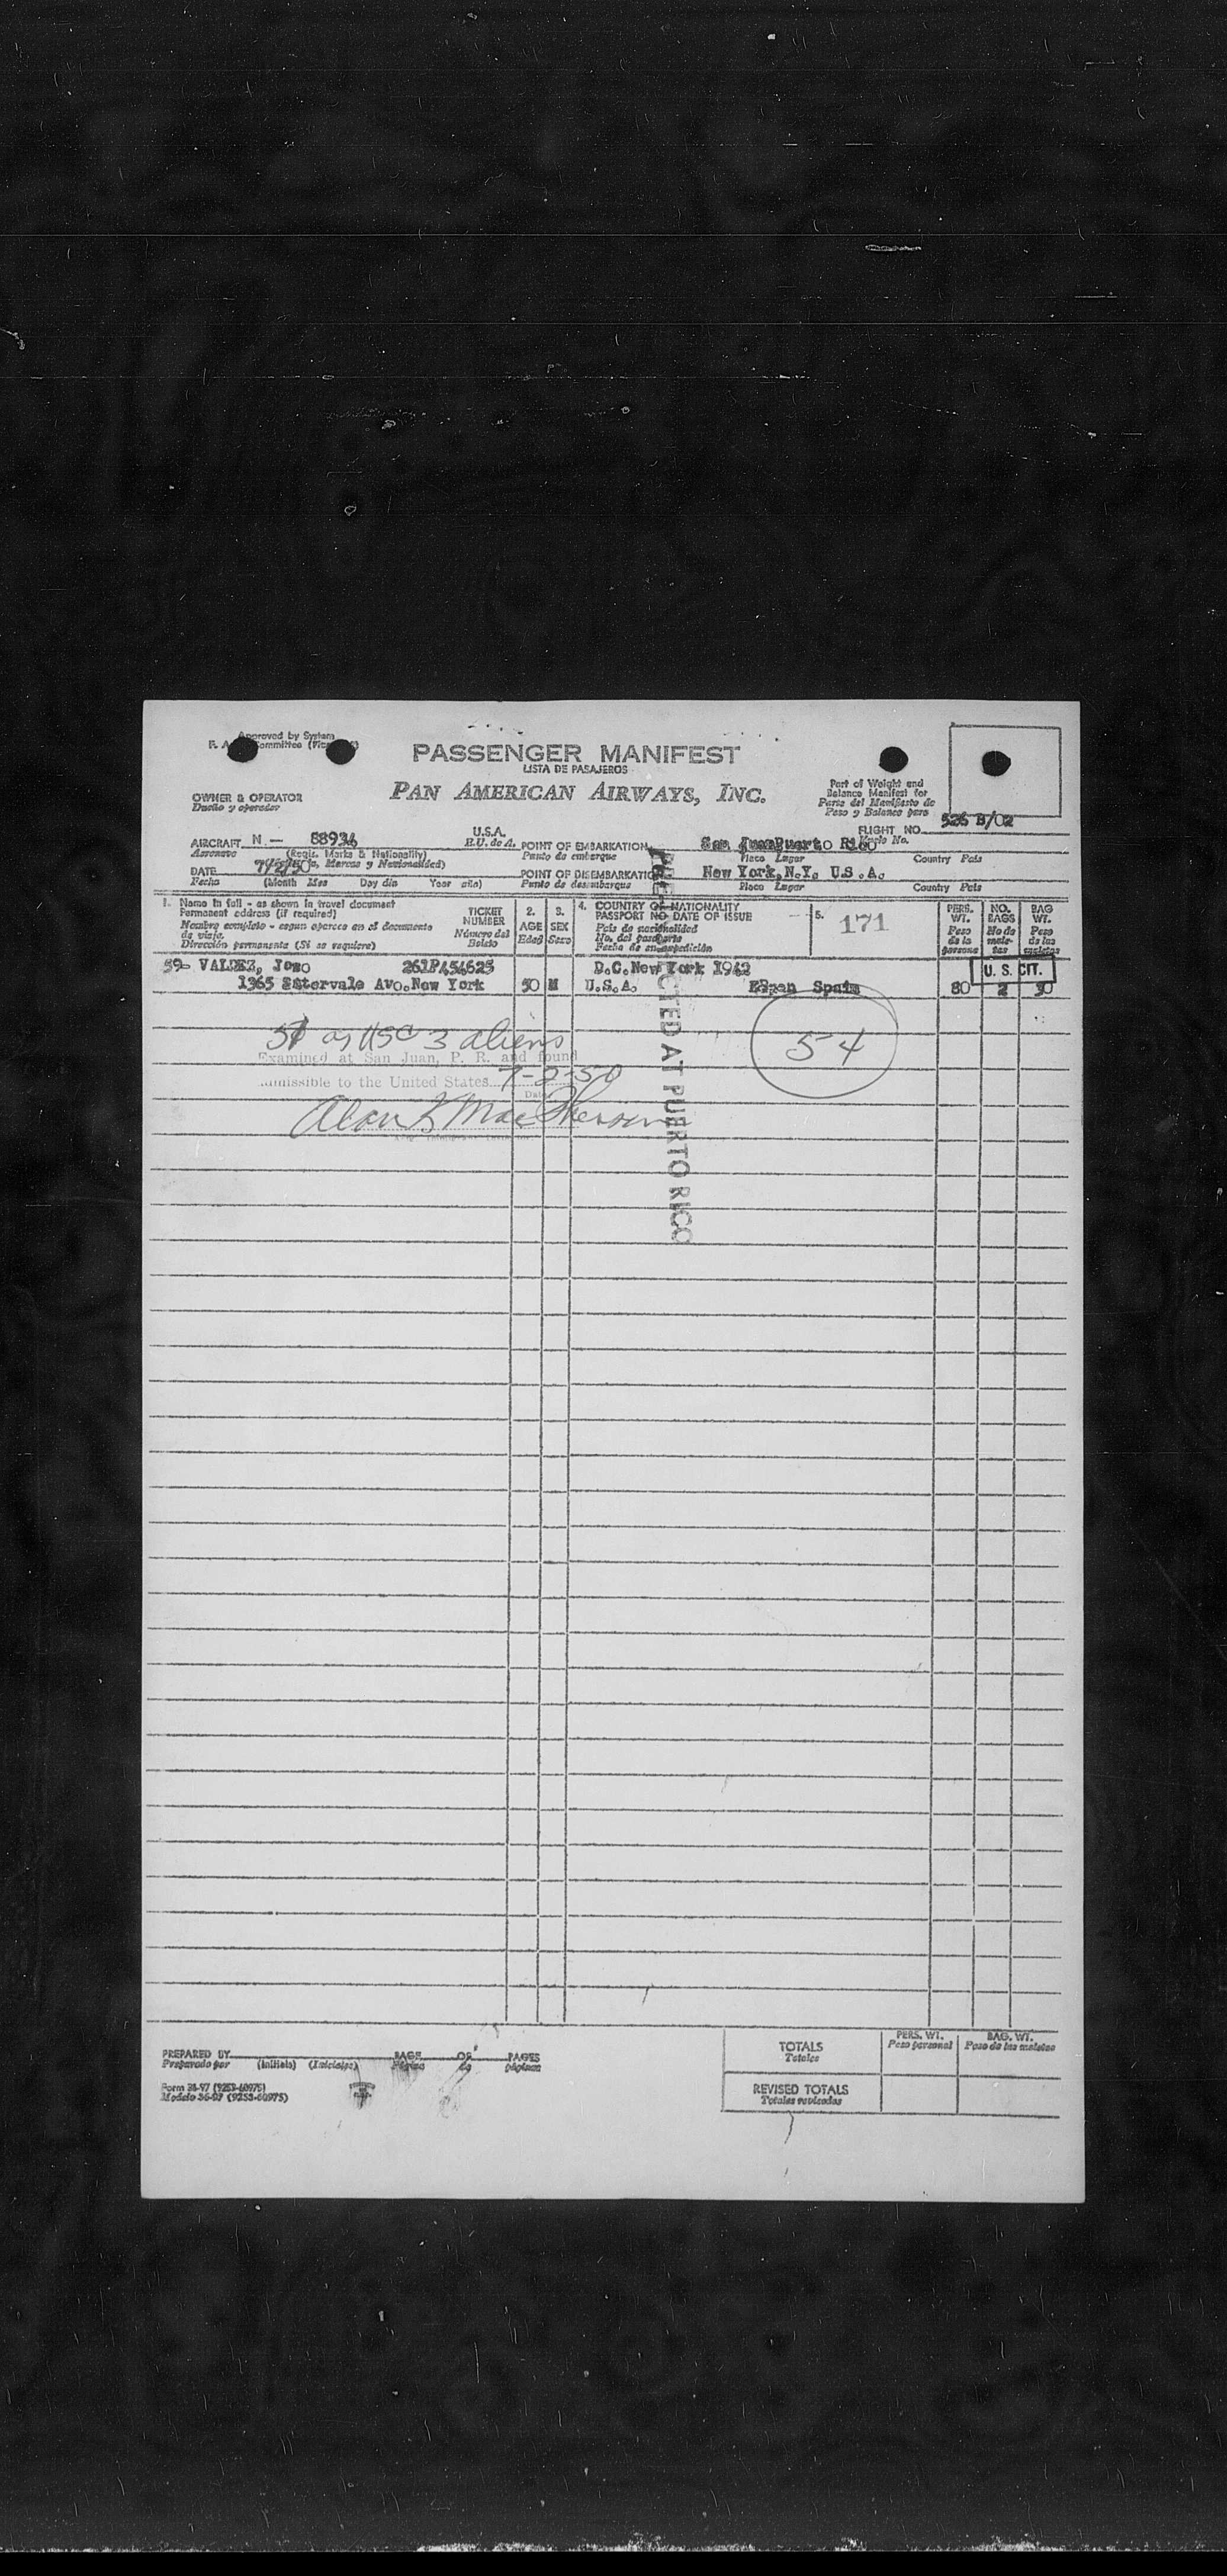 Approved by System
PASSENGER MANIFEST
LISTA DE PASAJEROS
PAN AMERICAN AIRWAYS, INC.
Part of Weight and
Balance Manifest for
Parte del Manifiesto de
Peso y Balance para
OWNER & OPERATOR
Dueño y operador
FLIGHT NO. 526 B/02
Vuelo No.
AIRCRAFT N — 88936 U.S.A.
Aeronave (Regis. Marks & Nationality) E.U. de A.
POINT OF EMBARKATION San Juan Puerto Rico
Punto de embarque Place Lugar Country País
DATE 7/2/50
Fecha (Month Mes Day día Year año)
POINT OF DISEMBARKATION New York, N.Y. U.S.A.
Punto de desembarque Place Lugar Country País
1. Name in full - as shown in travel document
Permanent address (if required)
Nombre completo - segun aparece en el documento
de viaje.
Dirección permanente (Si se requiere)
TICKET
NUMBER
Número del
Boleto
2.
AGE
Edad
3.
SEX
Sexo
4. COUNTRY OF NATIONALITY
PASSPORT NO. DATE OF ISSUE
País de nacionalidad
No. del pasaporte
Fecha de su expedición
5. 171
PERS.
WT.
Peso
de la
persona
NO.
BAGS
No de
male-
tas
BAG
WT.
Peso
de las
maletas
59- VALDEZ, Jose 261P454625 B.C. New York 1942 U. S. CIT.
1365 Intervale Ave. New York 50 M U.S.A. Spain 80 2 30
51 as USC 3 aliens
54
Examined at San Juan, P. R. and found
admissible to the United States 7-2-50
Date
INSPECTED AT PUERTO RICO
TOTALS
Totales
PERS. WT.
Peso personal
BAG. WT.
Peso de las maletas
REVISED TOTALS
Totales revisados
PREPARED BY PAGE OF PAGES
Preparado por (Initials) (Iniciales) Página de páginas
Form 36-97 (9253-60975)
Modelo 36-97 (9253-60975)